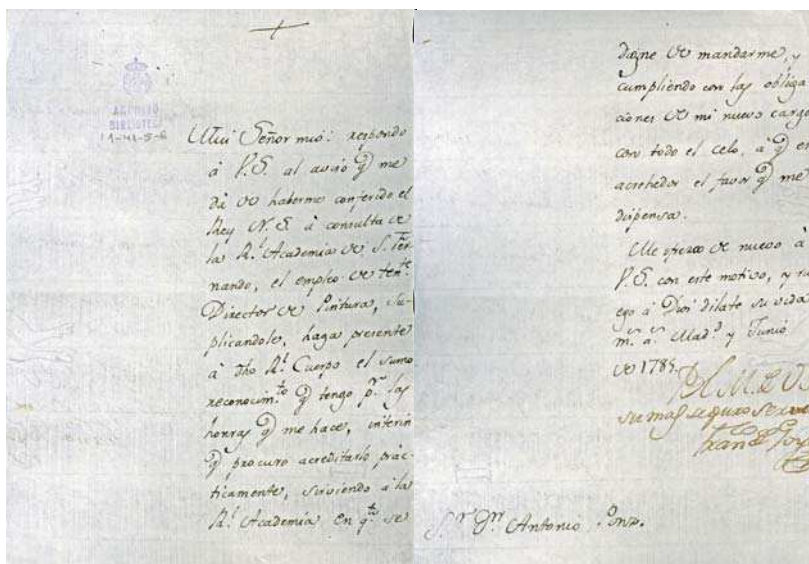 ARCHIVO
BIBLIOTECA
1-41-5-6
Mui Señor mio: respondo
á V.S. al aviso q.e me
dá de haberme conferido el
Rey N.S. á consulta de
la R.l Academia de S. Fer-
nando, el empleo de ten.te
Director de Pintura, su-
plicandole, haga presente
á dho R.l Cuerpo el sumo
reconocim.to q.e tengo p.r las
honras q.e me hace, interin
q.e procuro acreditarlo prac-
ticamente, sirviendo á la
R.l Academia en q.to se
digne de mandarme, y
cumpliendo con las obliga
ciones de mi nuevo cargo
con todo el celo, á q.e es
acrehedor el favor q.e me
dispensa.
Me ofrezco de nuevo á
V.S. con este motivo, y ru
ego á Dios dilate su vida
m.s a.s Mad.d y Junio
de 1785.
B.L.M. de V.
su mas seguro
Fran.co Goy
S.or D.n Antonio Ponz.